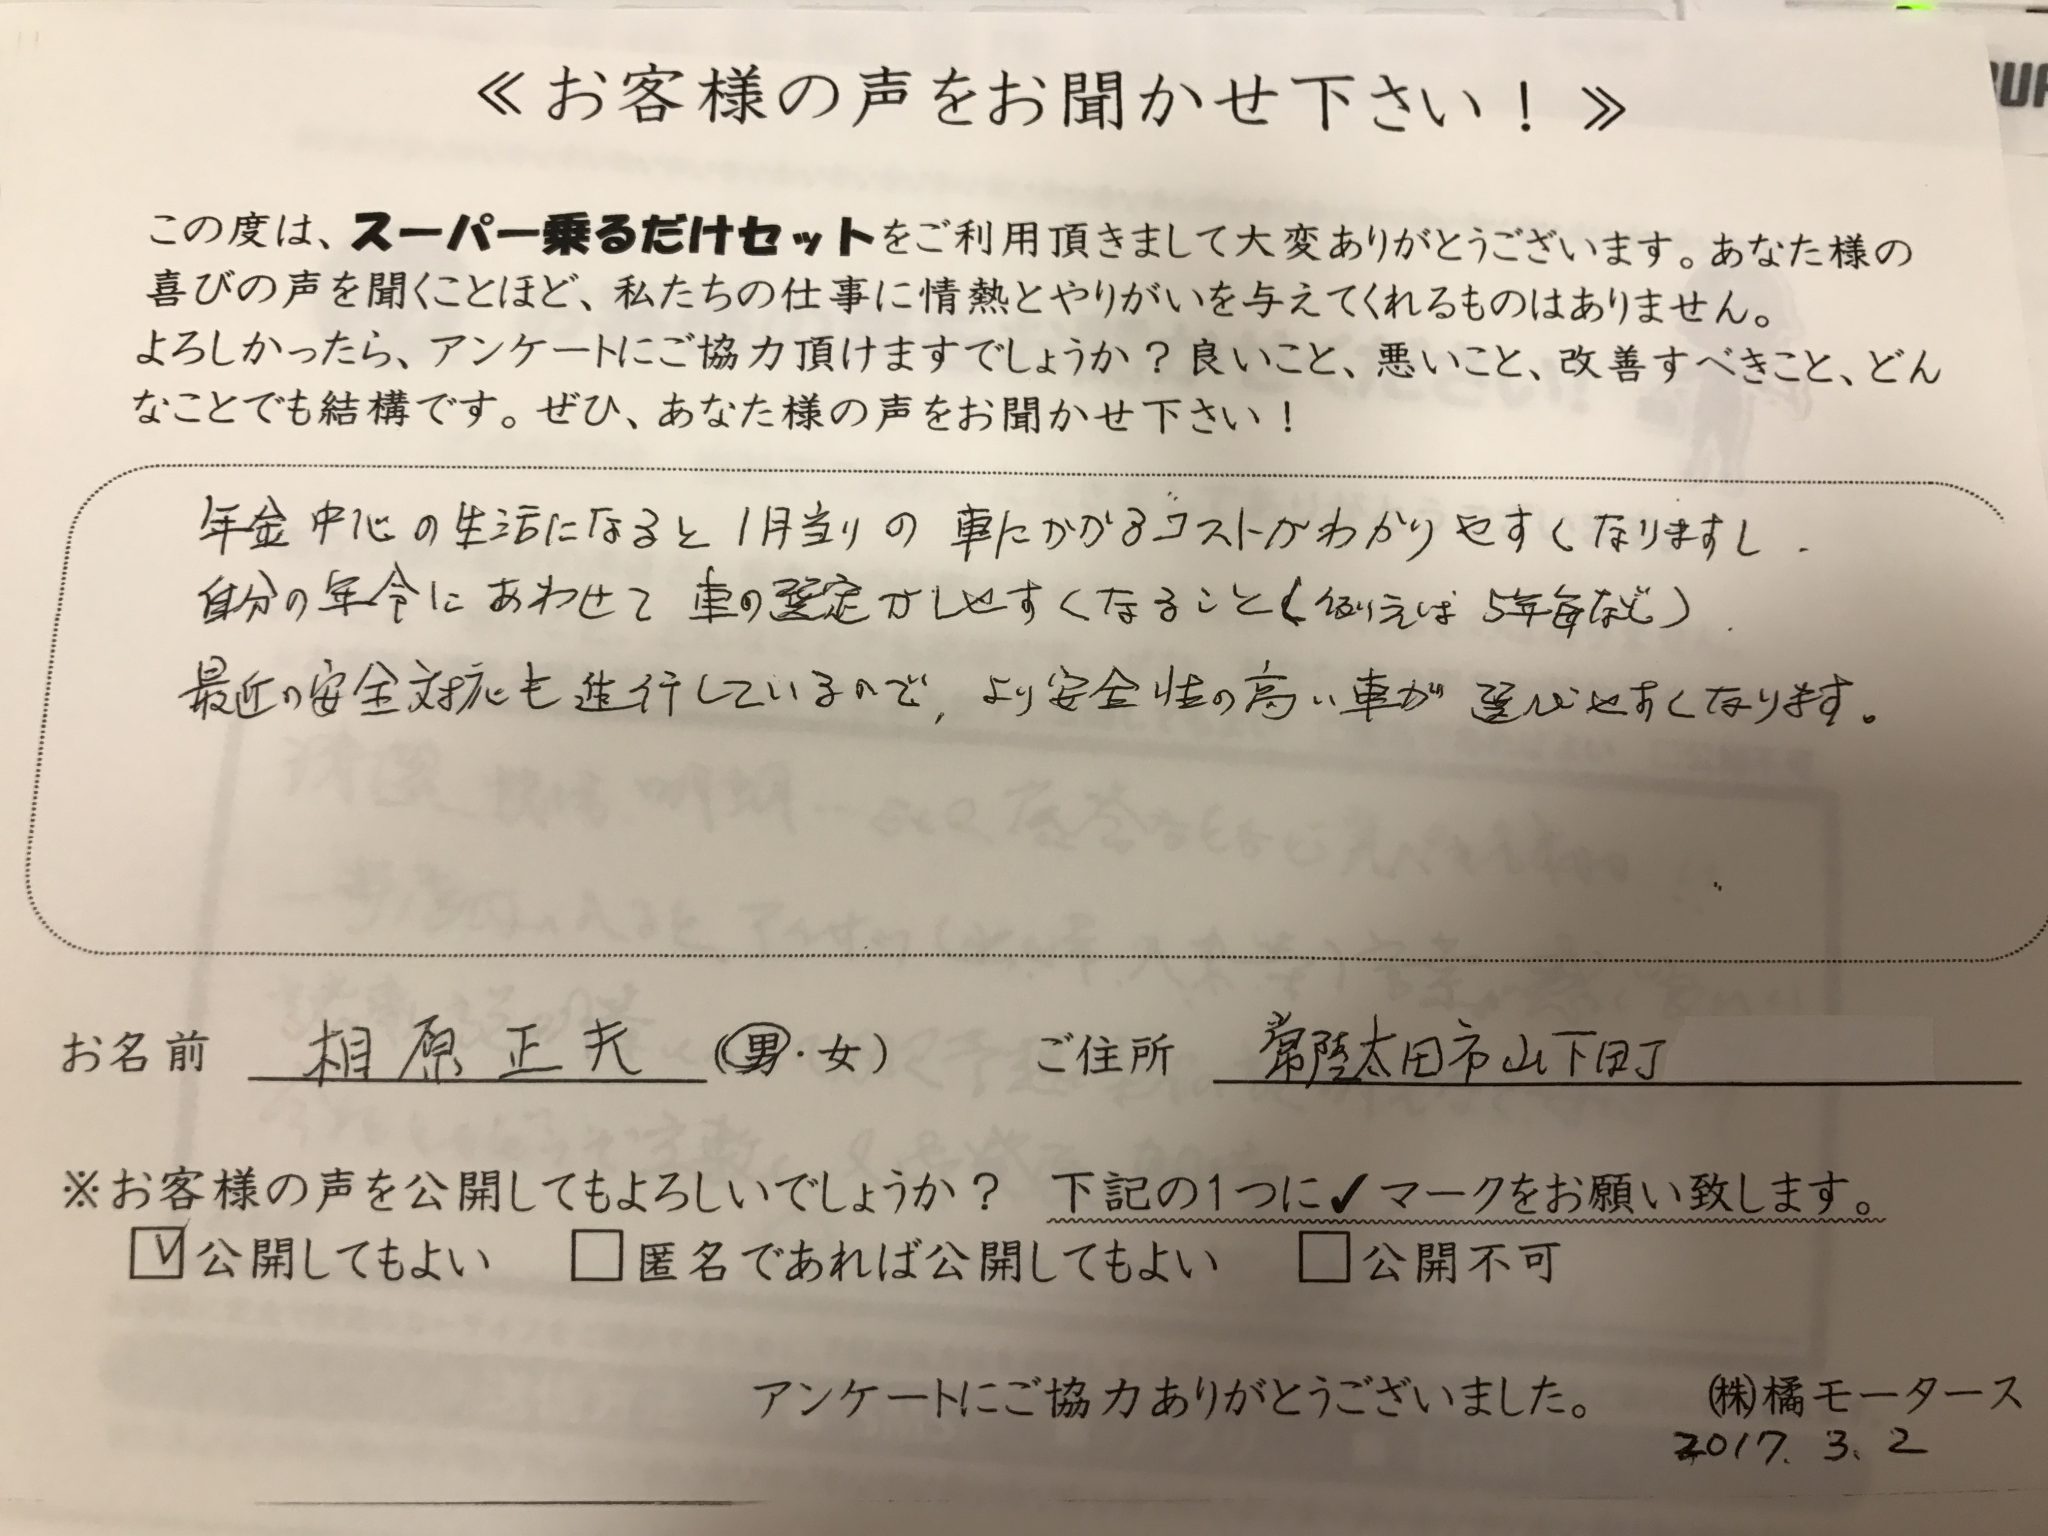 ≪お客様の声をお聞かせ下さい！≫
この度は、スーパー乗るだけセットをご利用頂きまして大変ありがとうございます。あなた様の
喜びの声を聞くことほど、私たちの仕事に情熱とやりがいを与えてくれるものはありません。
よろしかったら、アンケートにご協力頂けますでしょうか？良いこと、悪いこと、改善すべきこと、どん
なことでも結構です。ぜひ、あなた様の声をお聞かせ下さい！
年金中心の生活になると1月当りの車にかかるコストがわかりやすくなりますし、
自分の年令にあわせて車の選定がしやすくなること（例えば5年毎など）.
最近の安全対応も進行しているので、より安全性の高い車が選びやすくなります。
お名前 相原正夫 （男・女） ご住所 常陸太田市山下町
※お客様の声を公開してもよろしいでしょうか？ 下記の1つに✓マークをお願い致します。
☑公開してもよい □匿名であれば公開してもよい □公開不可
アンケートにご協力ありがとうございました。 ㈱橘モータース
2017. 3. 2